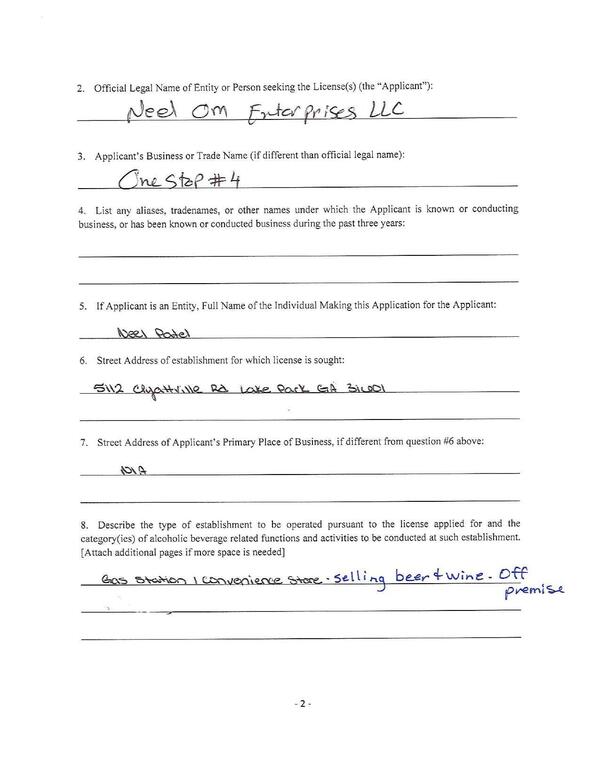 2. Official Legal Name of Entity or Person seeking the License(s) (the "Applicant"):
Neel Om Enterprises LLC
3. Applicant's Business or Trade Name (if different than official legal name):
One Stop #4
4. List any aliases, tradenames, or other names under which the Applicant is known or conducting
business, or has been known or conducted business during the past three years:
5. If Applicant is an Entity, Full Name of the Individual Making this Application for the Applicant:
Neel Patel
6. Street Address of establishment for which license is sought:
5112 Clyattville Rd Lake Park GA
7. Street Address of Applicant's Primary Place of Business, if different from question #6 above:
N/A
8. Describe the type of establishment to be operated pursuant to the license applied for and the
category(ies) of alcoholic beverage related functions and activities to be conducted at such establishment.
[Attach additional pages if more space is needed]
Gas Station / Convenience Store - Selling beer & wine - Off
premise
- 2 -